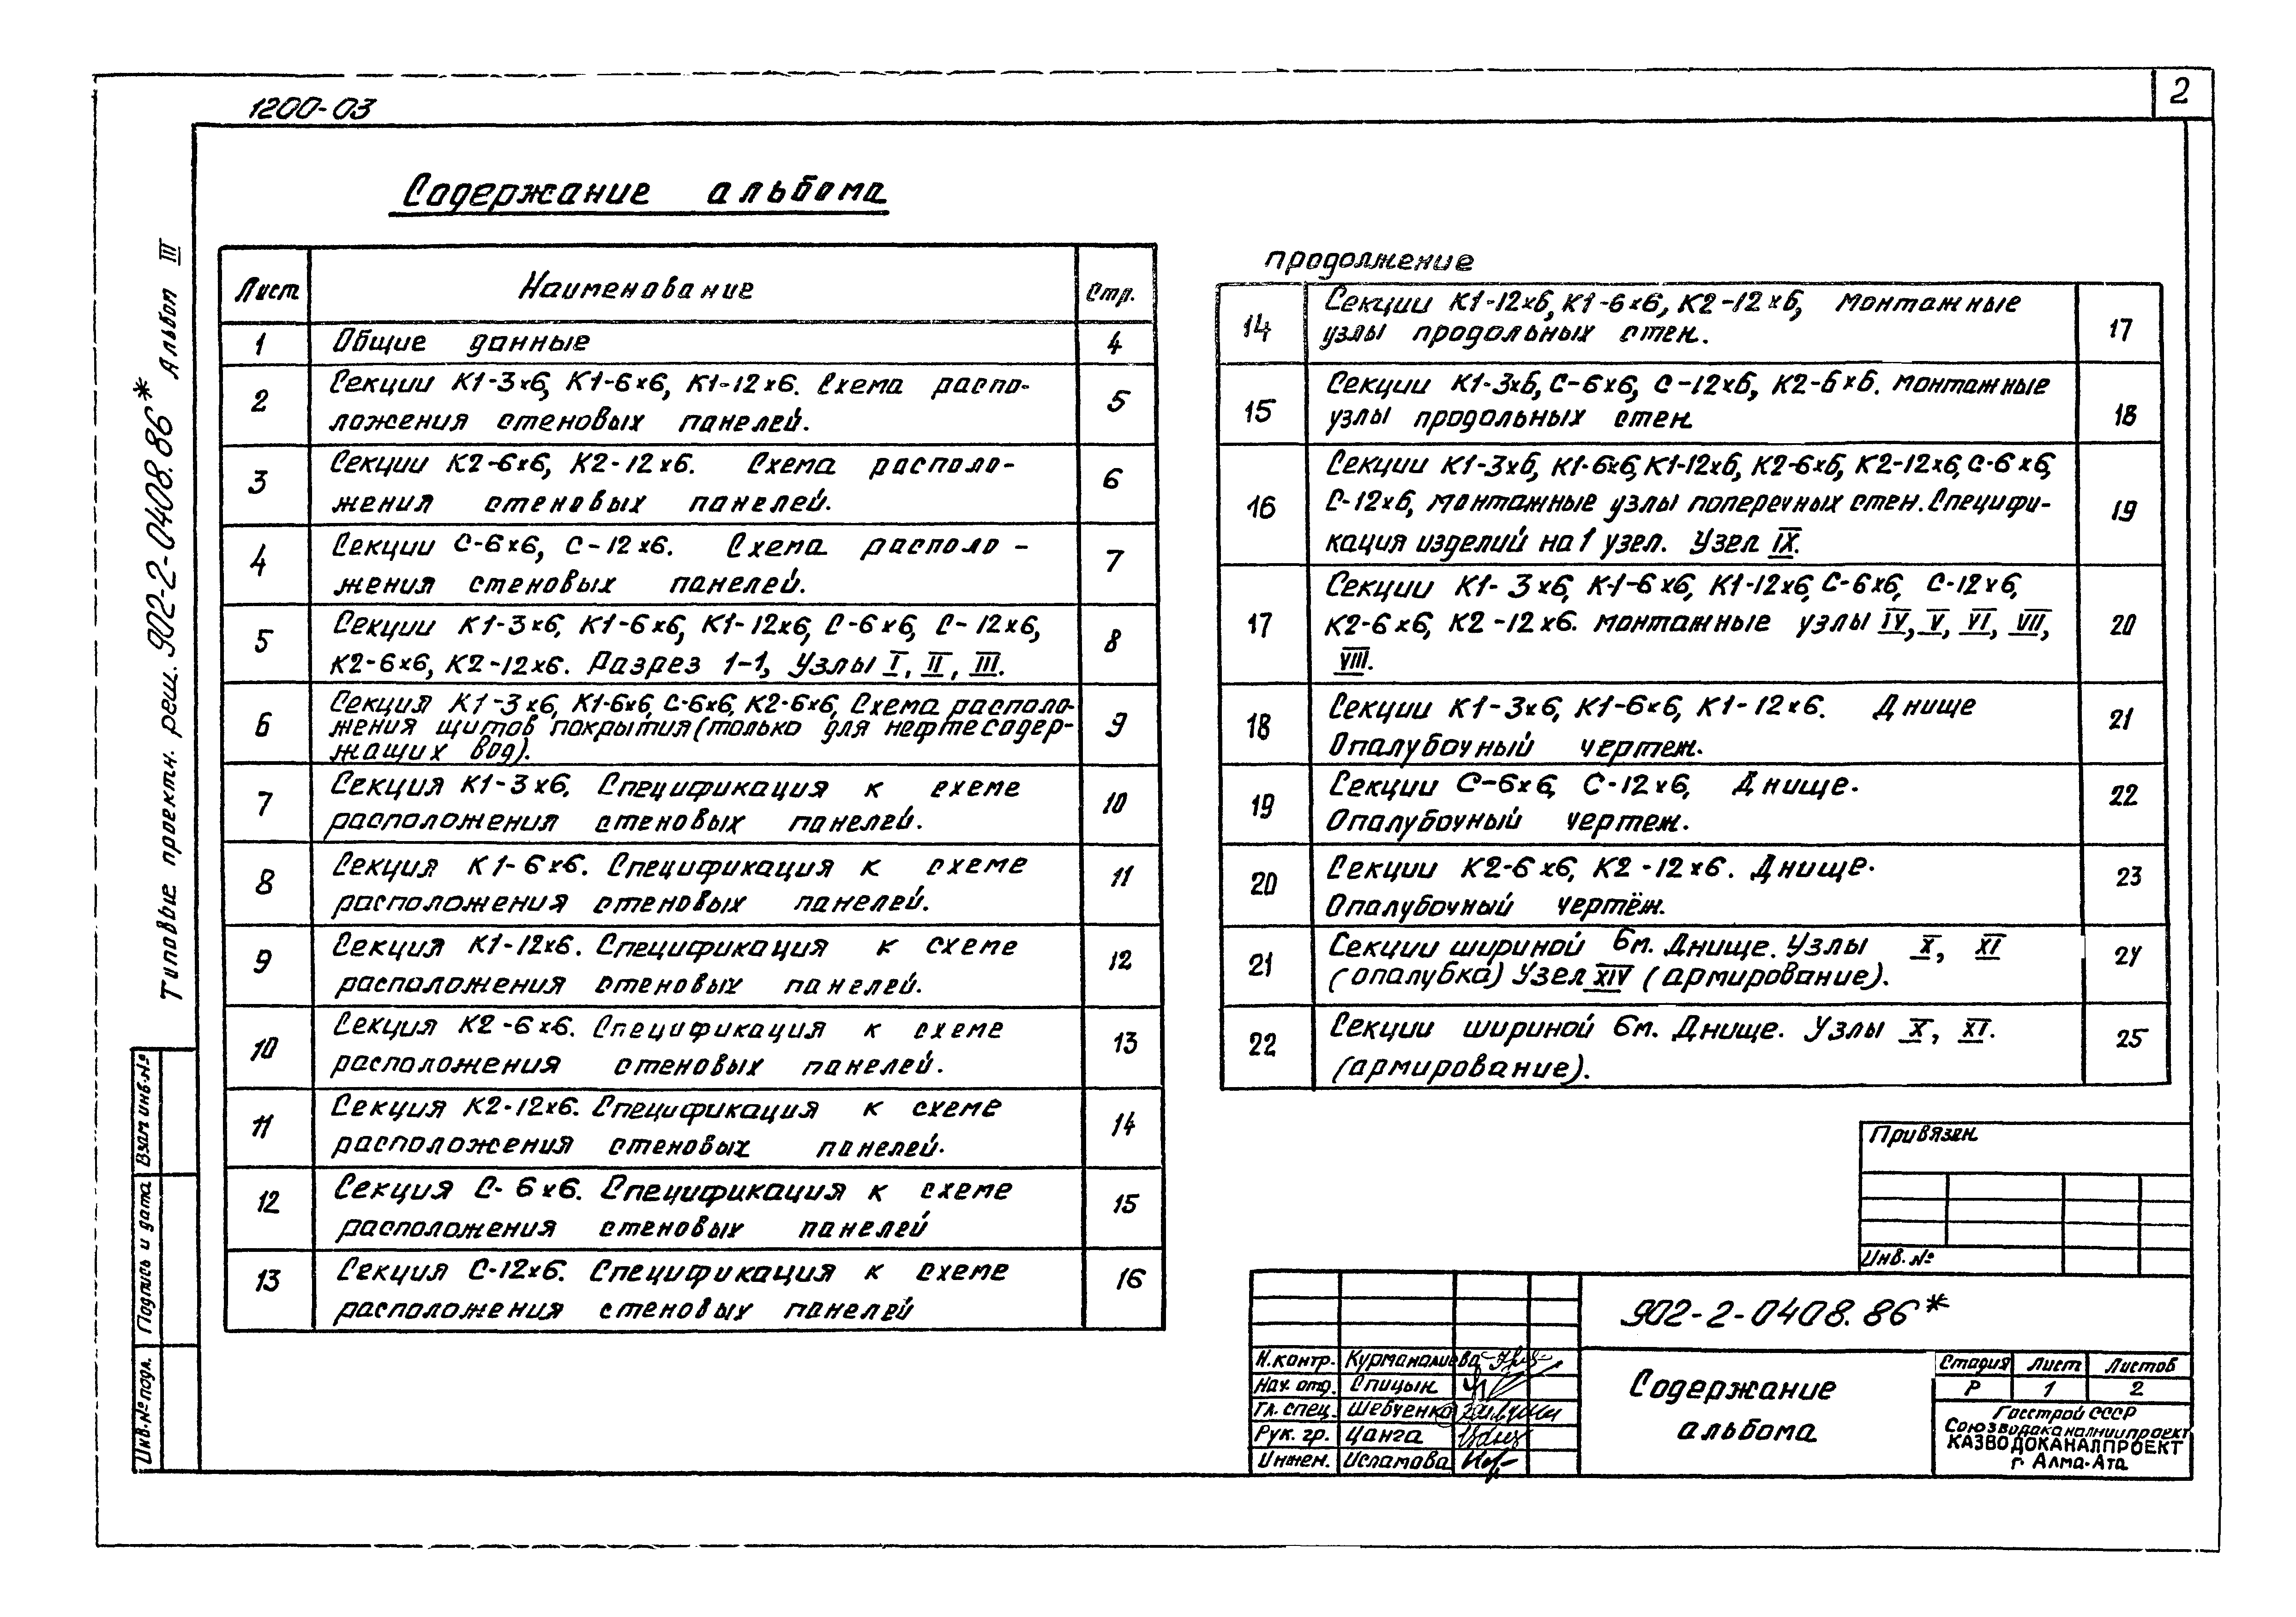 1200-03
2
Содержание альбома
Лист Наименование Стр.
1 Общие данные 4
2 Секции К1-3х6, К1-6х6, К1-12х6. Схема распо-
ложения стеновых панелей. 5
3 Секции К2-6х6, К2-12х6. Схема располо-
жения стеновых панелей. 6
4 Секции С-6х6, С-12х6. Схема располо-
жения стеновых панелей. 7
5 Секции К1-3х6, К1-6х6, К1-12х6, С-6х6, С-12х6,
К2-6х6, К2-12х6. Разрез 1-1, Узлы I, II, III. 8
6 Секция К1-3х6, К1-6х6, С-6х6, К2-6х6, Схема располо-
жения щитов покрытия (только для нефтесодер-
жащих вод). 9
7 Секция К1-3х6. Спецификация к схеме
расположения стеновых панелей. 10
8 Секция К1-6х6. Спецификация к схеме
расположения стеновых панелей. 11
9 Секция К1-12х6. Спецификация к схеме
расположения стеновых панелей. 12
10 Секция К2-6х6. Спецификация к схеме
расположения стеновых панелей. 13
11 Секция К2-12х6. Спецификация к схеме
расположения стеновых панелей. 14
12 Секция С-6х6. Спецификация к схеме
расположения стеновых панелей 15
13 Секция С-12х6. Спецификация к схеме
расположения стеновых панелей 16
продолжение
14 Секции К1-12х6, К1-6х6, К2-12х6, монтажные
узлы продольных стен. 17
15 Секции К1-3х6, С-6х6, С-12х6, К2-6х6. монтажные
узлы продольных стен. 18
16 Секции К1-3х6, К1-6х6, К1-12х6, К2-6х6, К2-12х6, С-6х6,
С-12х6, монтажные узлы поперечных стен. Специфи-
кация изделий на 1 узел. Узел IX. 19
17 Секции К1-3х6, К1-6х6, К1-12х6, С-6х6, С-12х6,
К2-6х6, К2-12х6. монтажные узлы IV, V, VI, VII,
VIII. 20
18 Секции К1-3х6, К1-6х6, К1-12х6. Днище
Опалубочный чертеж. 21
19 Секции С-6х6, С-12х6, Днище.
Опалубочный чертеж. 22
20 Секции К2-6х6, К2-12х6. Днище.
Опалубочный чертёж. 23
21 Секции шириной 6м. Днище. Узлы X, XI
(опалубка) Узел XIV (армирование). 24
22 Секции шириной 6м. Днище. Узлы X, XI.
(армирование). 25
Типовые проектн. реш. 902-2-0408.86* Альбом III
Взам инв.№
Подпись и дата
Инв.№ подл.
Привязан
Инв.№
902-2-0408.86*
Н.контр. Курманалиева
Нач. отд. Спицын
Гл. спец. Шевченко
Рук. гр. Цанга
Инжен. Исламова
Содержание
альбома
Стадия Лист Листов
Р 1 2
Госстрой СССР
Союзводоканалниипроект
КАЗВОДОКАНАЛПРОЕКТ
г. Алма-Ата